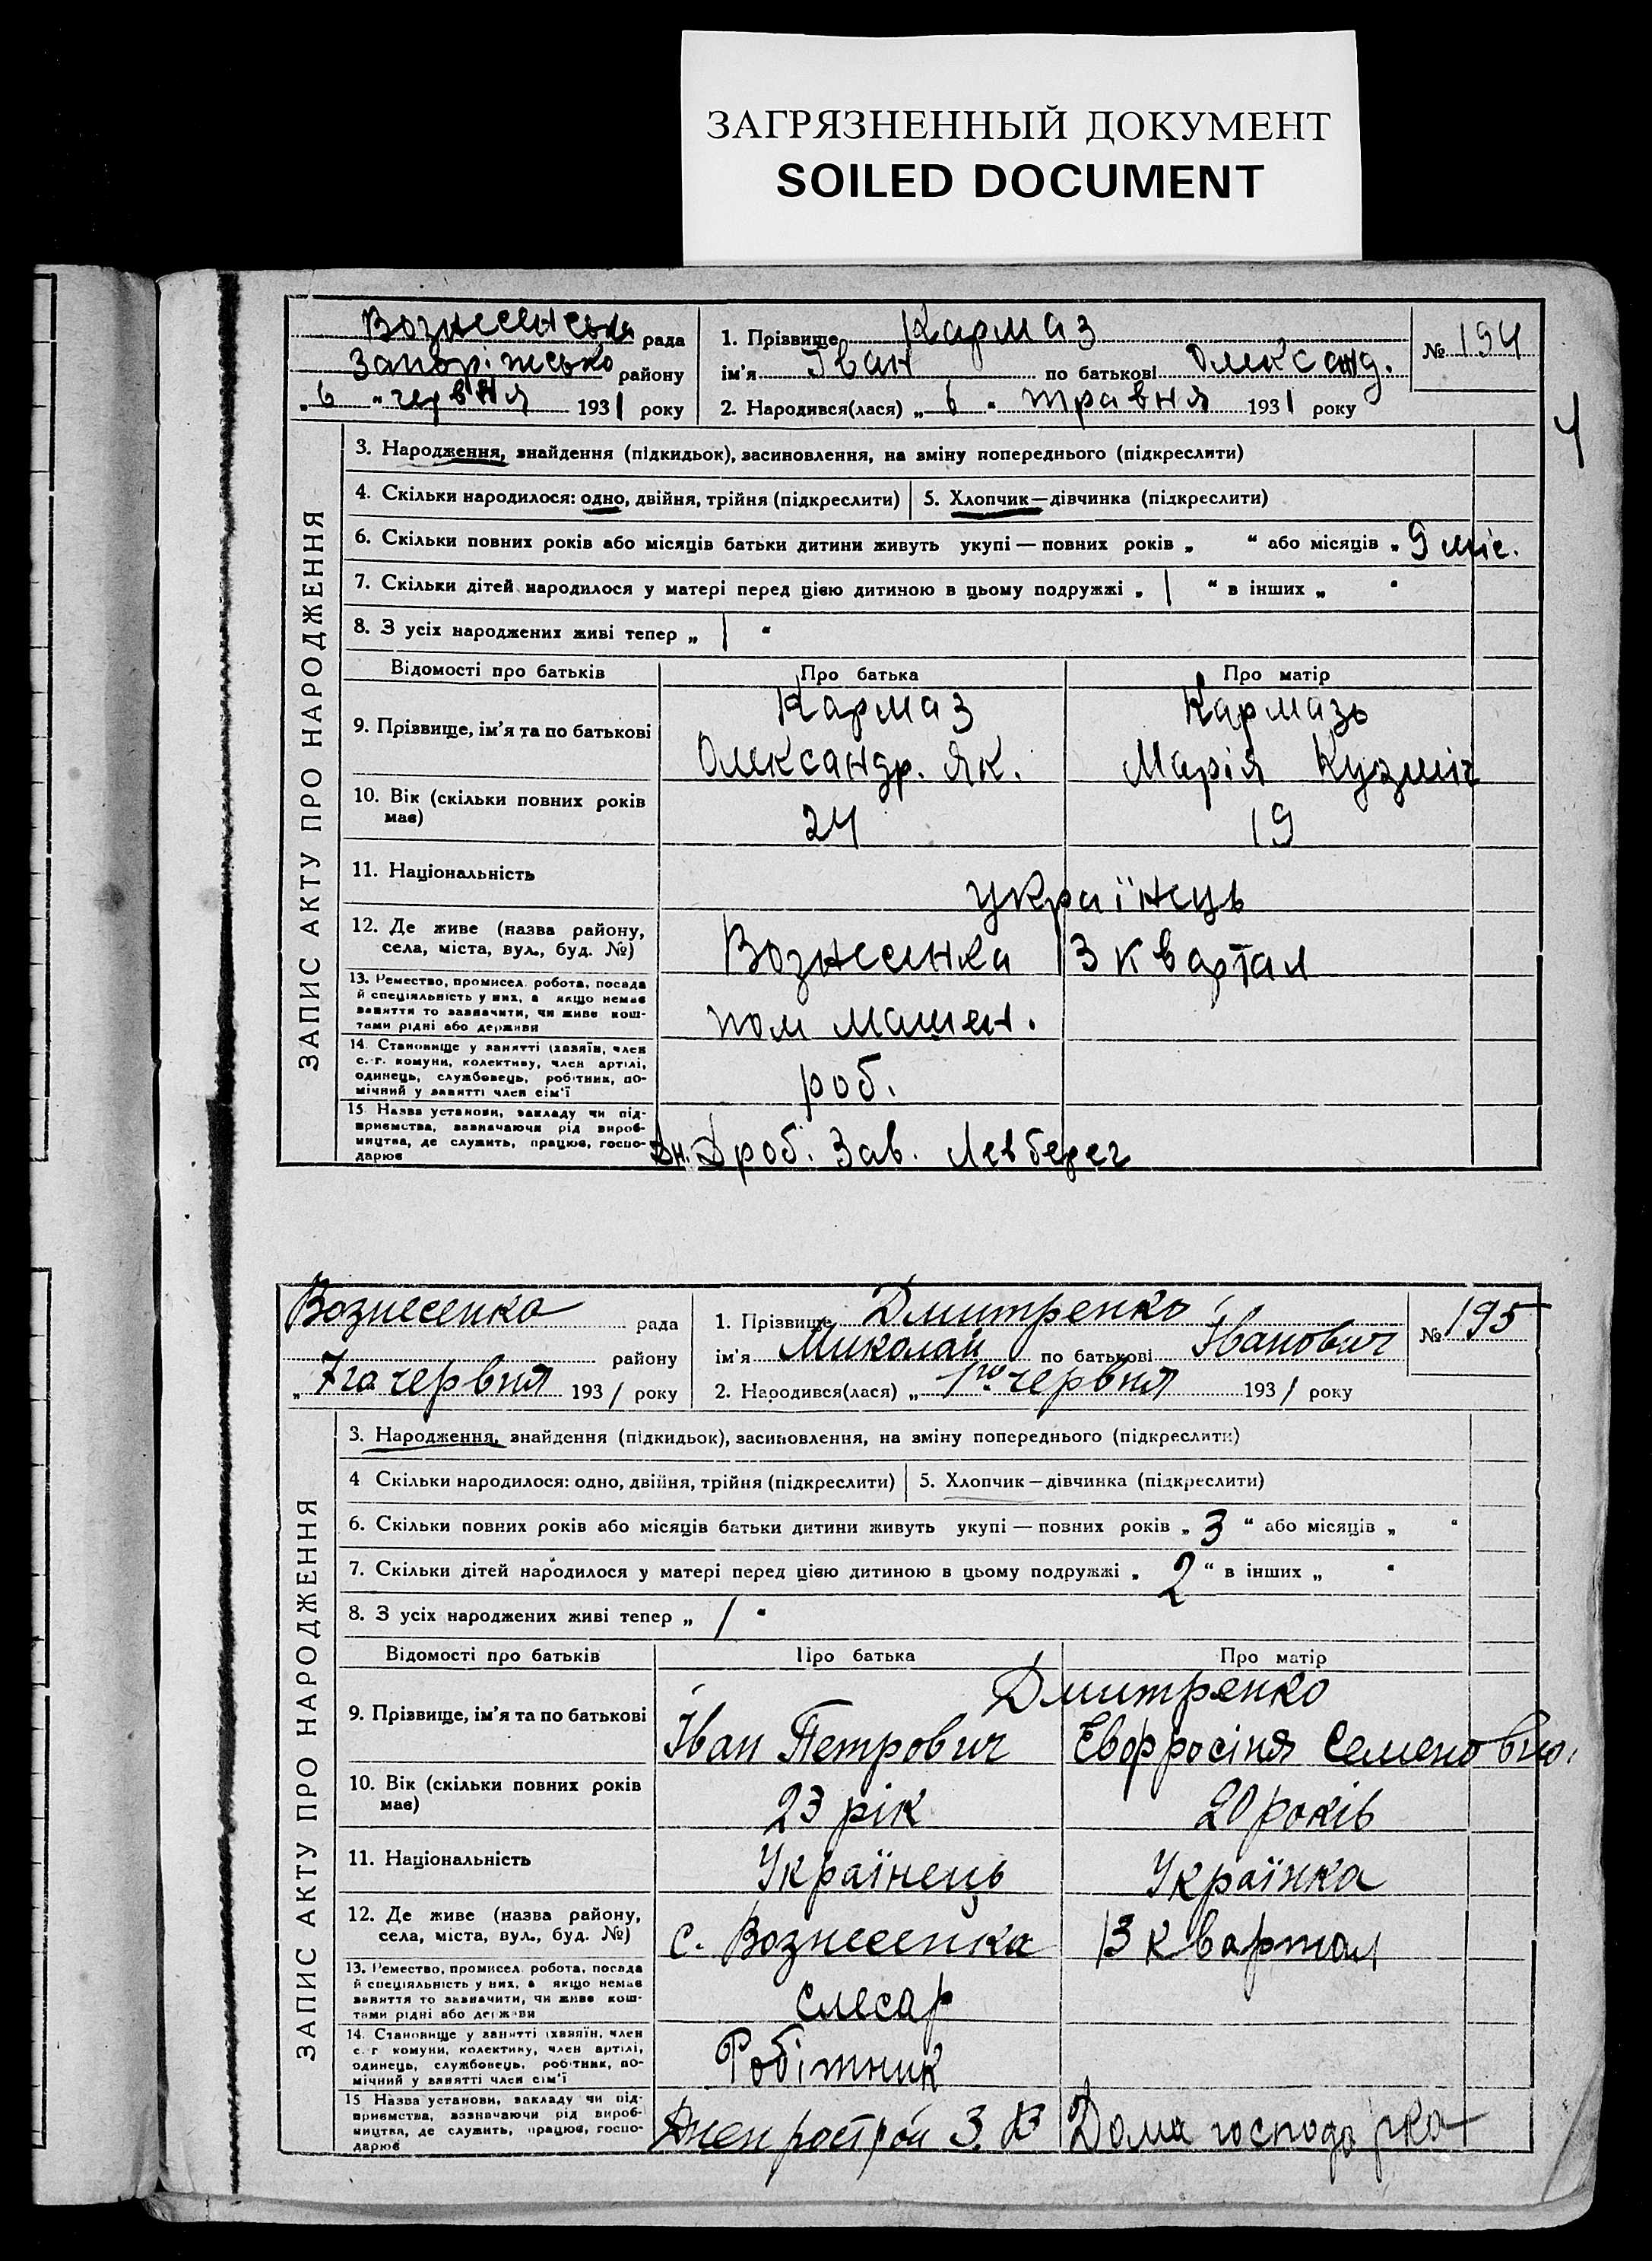 ЗАГРЯЗНЕННЫЙ ДОКУМЕНТ
SOILED DOCUMENT
Вознесенська рада
Запоріжсько району
„6“ червня 1931 року
1. Прізвище Кармаз
ім'я Іван по батькові Олександ.
2. Народився(лася) „6“ травня 1931 року
№ 194
ЗАПИС АКТУ ПРО НАРОДЖЕННЯ
3. Народження, знайдення (підкидьок), засиновлення, на зміну попереднього (підкреслити)
4. Скільки народилося: одно, двійня, трійня (підкреслити) 5. Хлопчик — дівчинка (підкреслити)
6. Скільки повних років або місяців батьки дитини живуть укупі — повних років „ “ або місяців „ 9 міс.
7. Скільки дітей народилося у матері перед цією дитиною в цьому подружжі „ 1 “ в інших „ “
8. З усіх народжених живі тепер „ 1 “
Відомості про батьків Про батька Про матір
9. Прізвище, ім'я та по батькові
Кармаз Кармазь
Олександр. Як. Марія Кузміч
10. Вік (скільки повних років має)
24 19
11. Національність
українець
12. Де живе (назва району, села, міста, вул., буд. №)
Вознесенка 3 квартал
13. Ремество, промисел, робота, посада й спеціяльність у них, а якщо немає заняття то зазначити, чи живе коштами рідні або держави
пом машен.
14. Становище у занятті (хазяїн, член с.-г. комуни, колективу, член артілі, одинець, службовець, робітник, помічний у занятті член сім'ї
роб.
15. Назва установи, закладу чи підприємства, зазначаючи рід виробництва, де служить, працює, господарює
Дн. Дроб. Зав. Левберег
Вознесенка рада
району
„7го червня 1931 року
1. Прізвище Дмитренко
ім'я Миколай по батькові Іванович
2. Народився(лася) „1го червня 1931 року
№ 195
ЗАПИС АКТУ ПРО НАРОДЖЕННЯ
3. Народження, знайдення (підкидьок), засиновлення, на зміну попереднього (підкреслити)
4 Скільки народилося: одно, двійня, трійня (підкреслити) 5. Хлопчик — дівчинка (підкреслити)
6. Скільки повних років або місяців батьки дитини живуть укупі — повних років „ 3 “ або місяців „ “
7. Скільки дітей народилося у матері перед цією дитиною в цьому подружжі „ 2 “ в інших „ “
8. З усіх народжених живі тепер „ 1 “
Відомості про батьків Про батька Про матір
9. Прізвище, ім'я та по батькові
Дмитренко
Іван Петрович Евфросіня Семеновно.
10. Вік (скільки повних років має)
23 рік 20 років
11. Національність
Українець Українка
12. Де живе (назва району, села, міста, вул., буд. №)
с. Вознесенка 13 квартал
13. Ремество, промисел, робота, посада й спеціяльність у них, а якщо немає заняття то зазначити, чи живе коштами рідні або держави
слесар
14. Становище у занятті (хазяїн, член с.-г. комуни, колективу, член артілі, одинець, службовець, робітник, помічний у занятті член сім'ї
Робітник
15 Назва установи, закладу чи підприємства, зазначаючи рід виробництва, де служить, працює, господарює
Днепрострой З. В Дома господарка